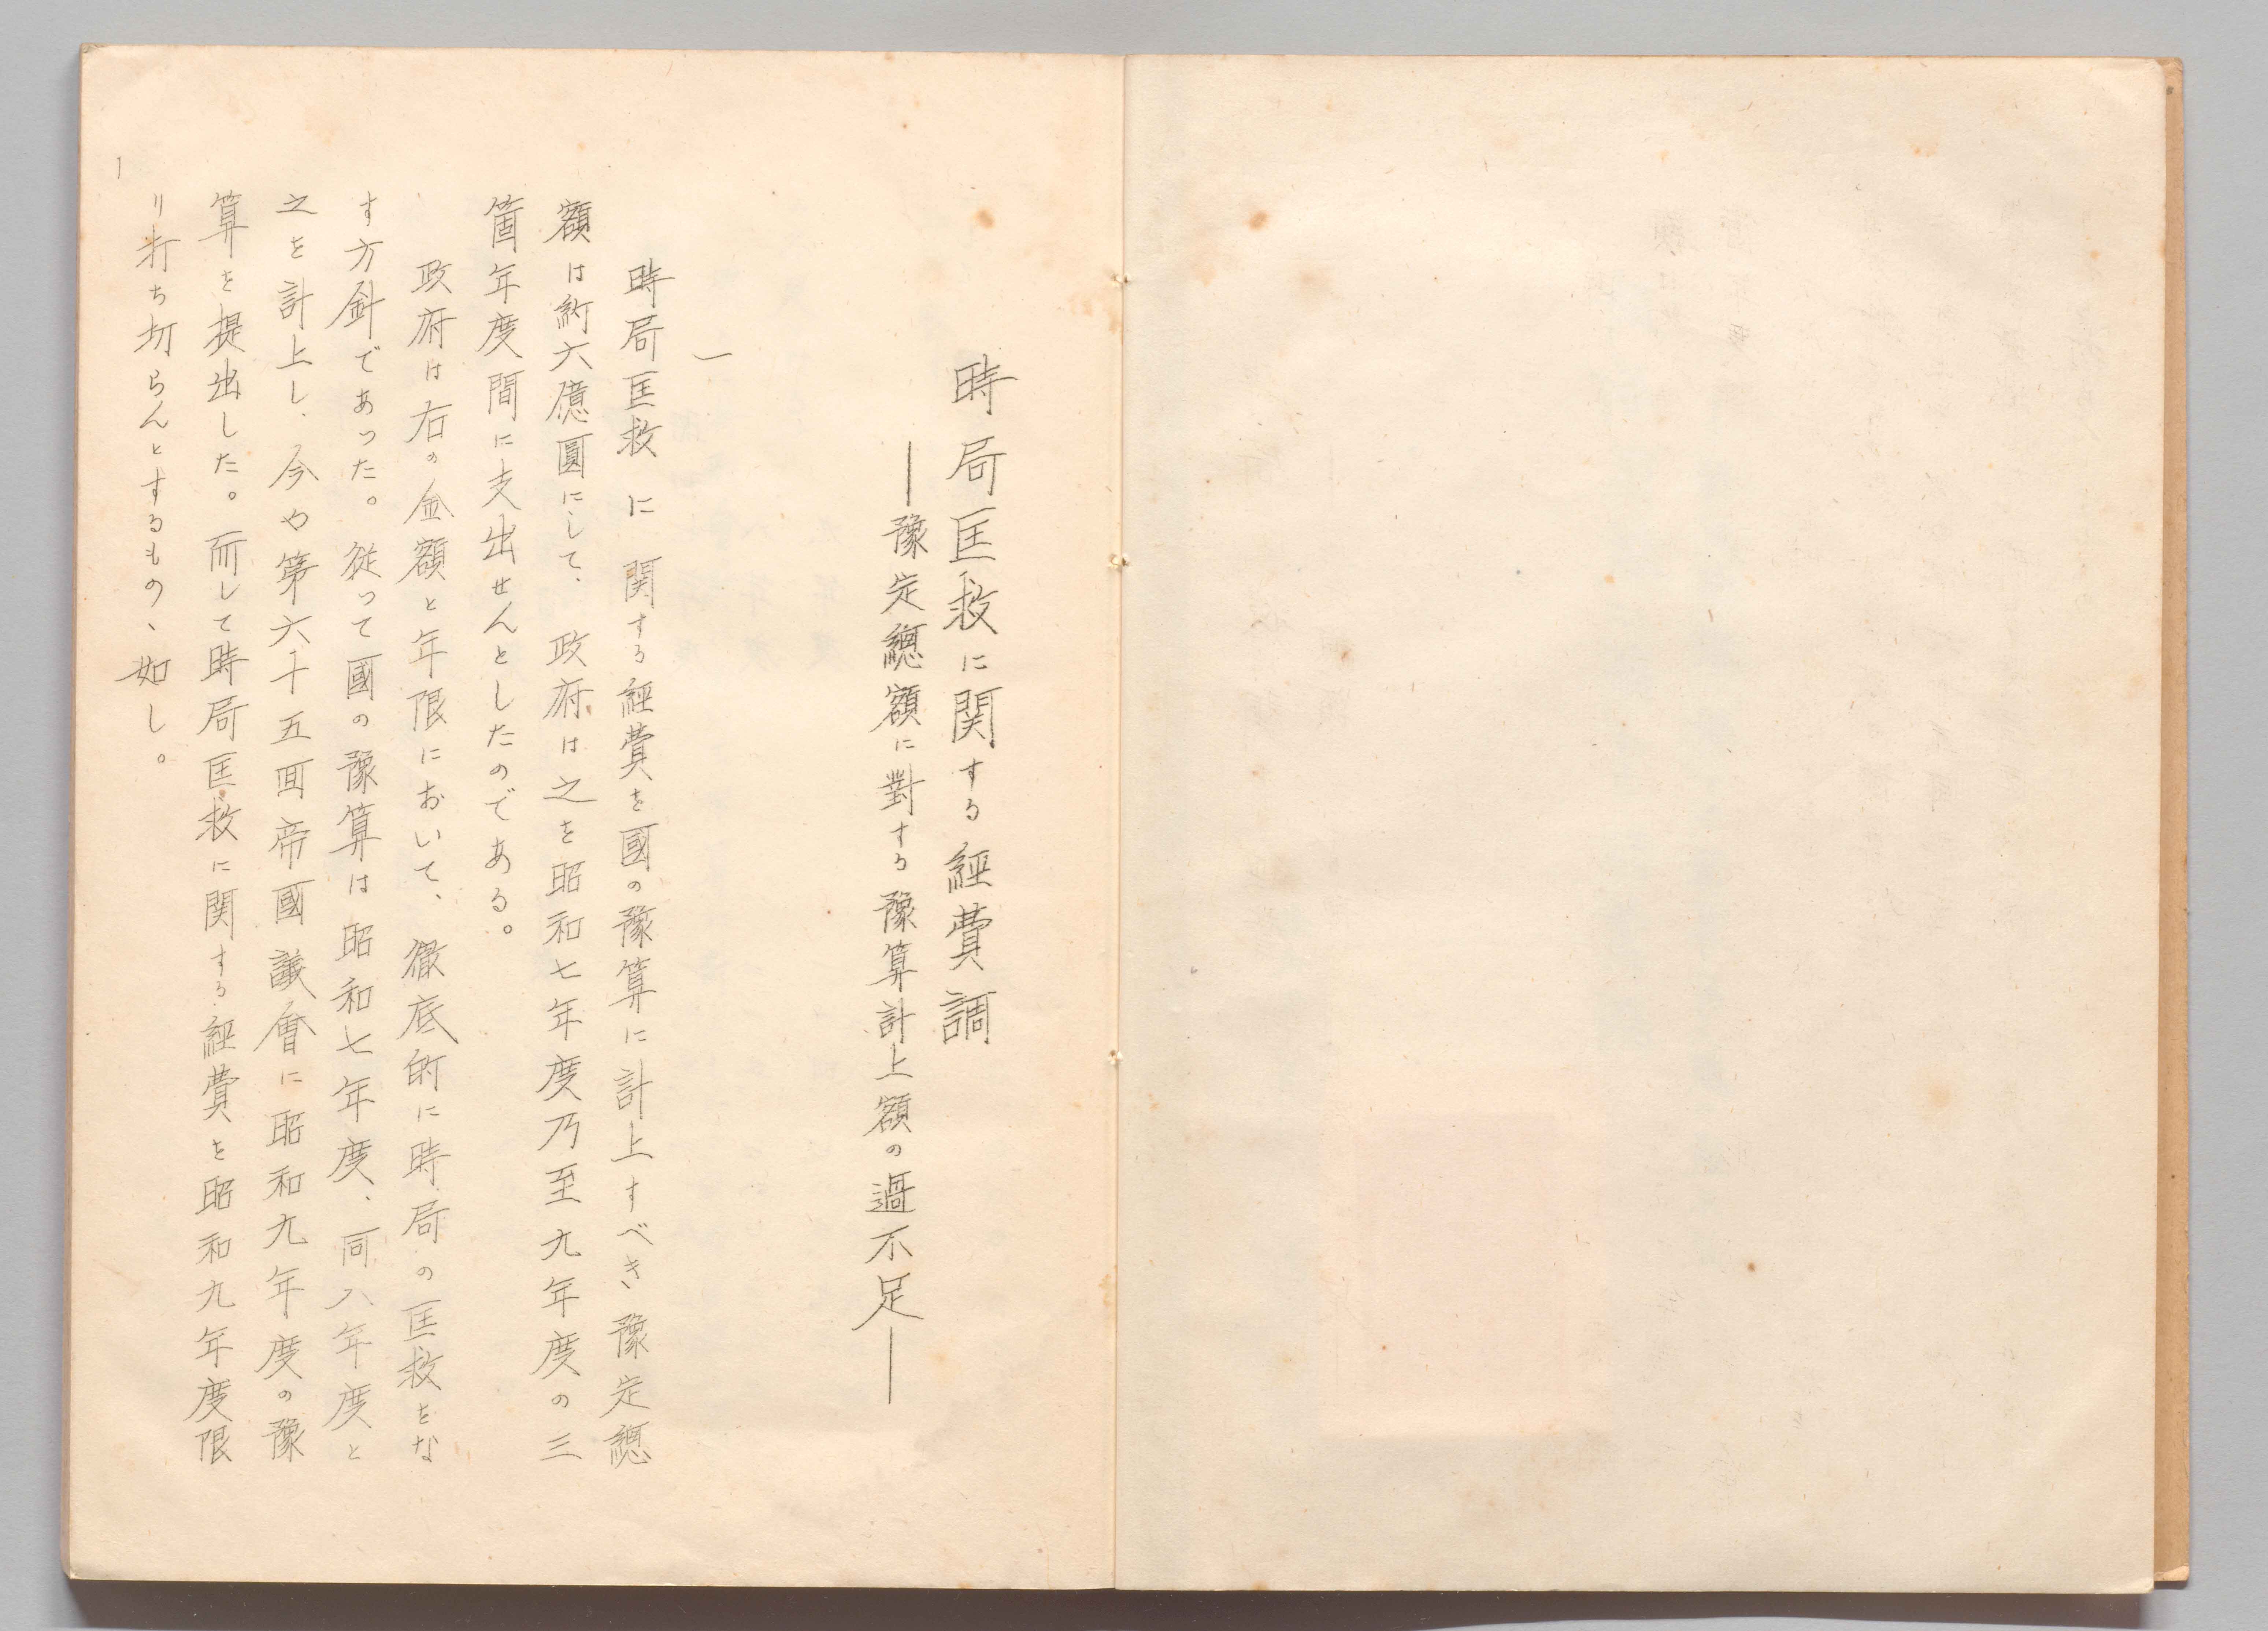 時局匡救に関する經費調
―豫定總額に對する豫算計上額の過不足―
一
時局匡救に関する經費を國の豫算に計上すべき豫定總
額は約六億圓にして、政府は之を昭和七年度乃至九年度の三
箇年度間に支出せんとしたのである。
政府は右の金額と年限において、徹底的に時局の匡救をな
す方針であった。從って國の豫算は昭和七年度、同八年度と
之を計上し、今や第六十五囬帝國議會に昭和九年度の豫
算を提出した。而して時局匡救に関する經費を昭和九年度限
り打ち切らんとするもの、如し。
1